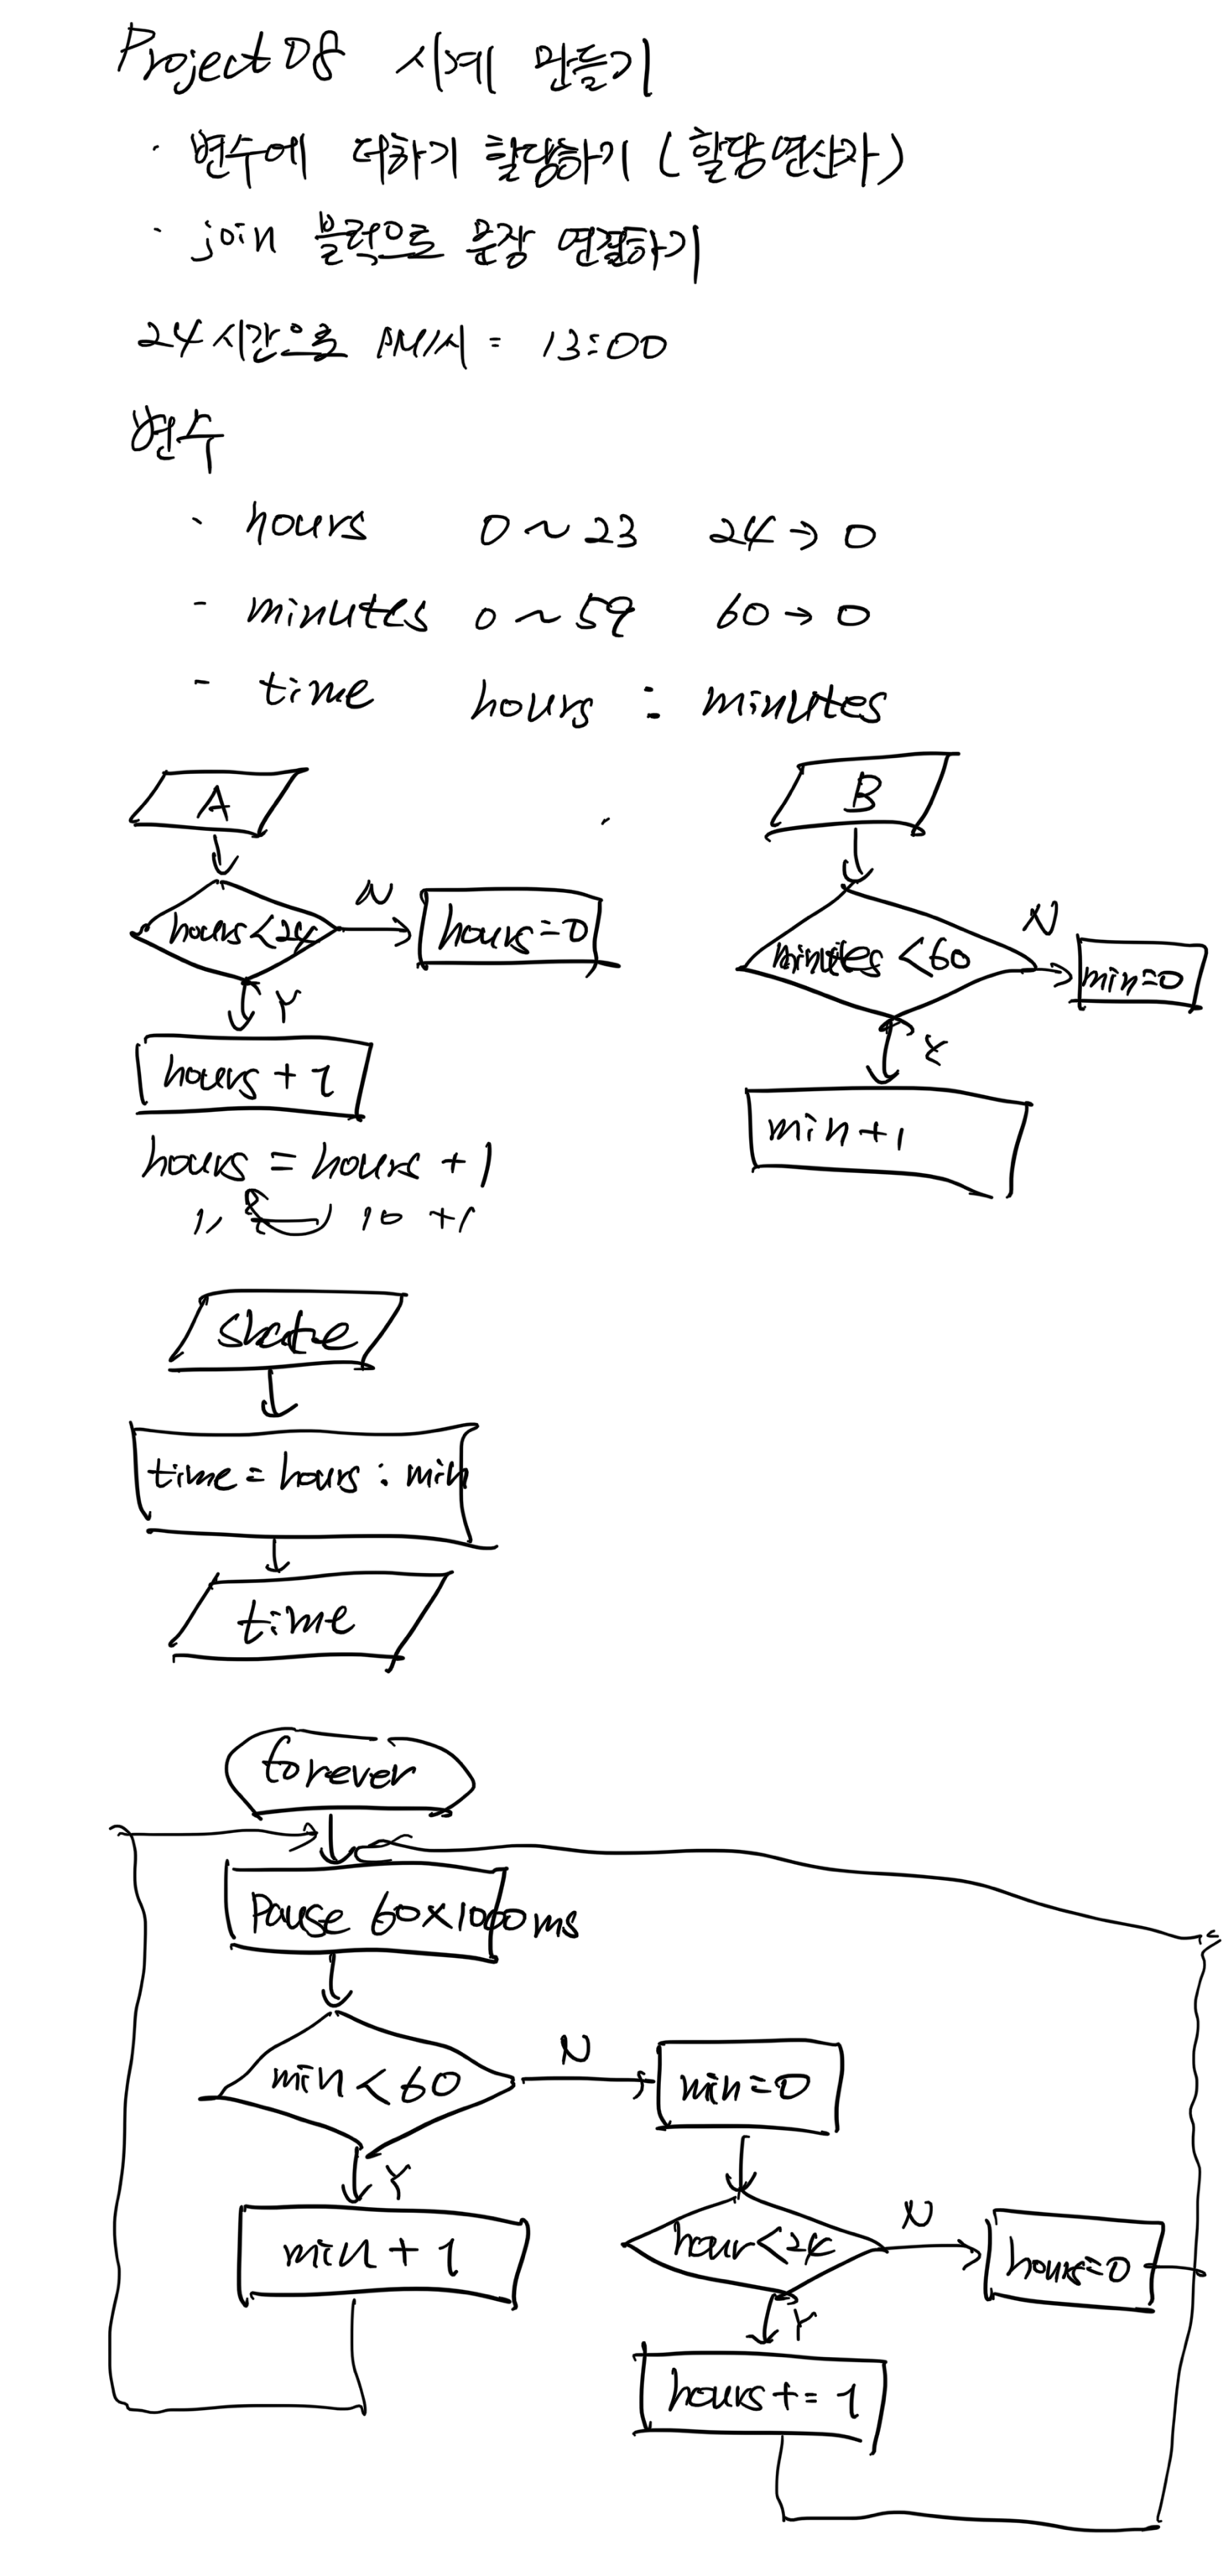 Project 08 시계 만들기
· 변수에 더하기 할당하기 (할당연산자)
· join 블럭으로 문장 연결하기
24시간으로 PM1시 = 13:00
변수
- hours 0~23 24→0
- minutes 0~59 60→0
- time hours : minutes
A
hours<24
N
hours=0
Y
hours+1
hours = hours +1
11 10 +1
B
minutes <60
N
min=0
Y
min+1
shake
time = hours : min
time
forever
Pause 60×1000ms
min<60
N
min=0
Y
min+1
hour<24
N
hours=0
Y
hours+=1